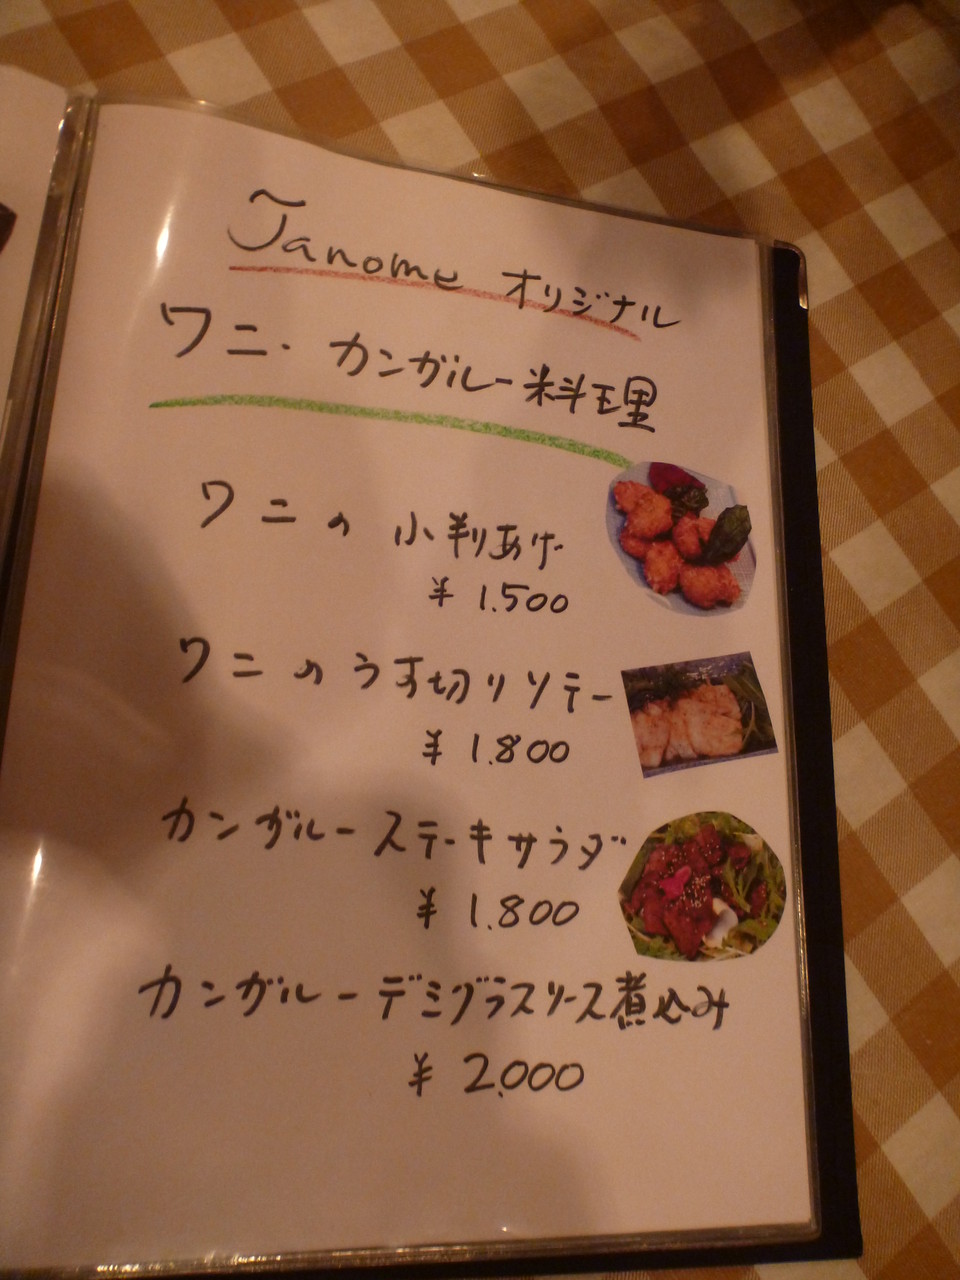 Janome オリジナル
ワニ・カンガルー料理
ワニの小判あげ
¥1.500
ワニのうす切りソテー
¥1.800
カンガルーステーキサラダ
¥1.800
カンガルーデミグラスソース煮込み
¥2.000